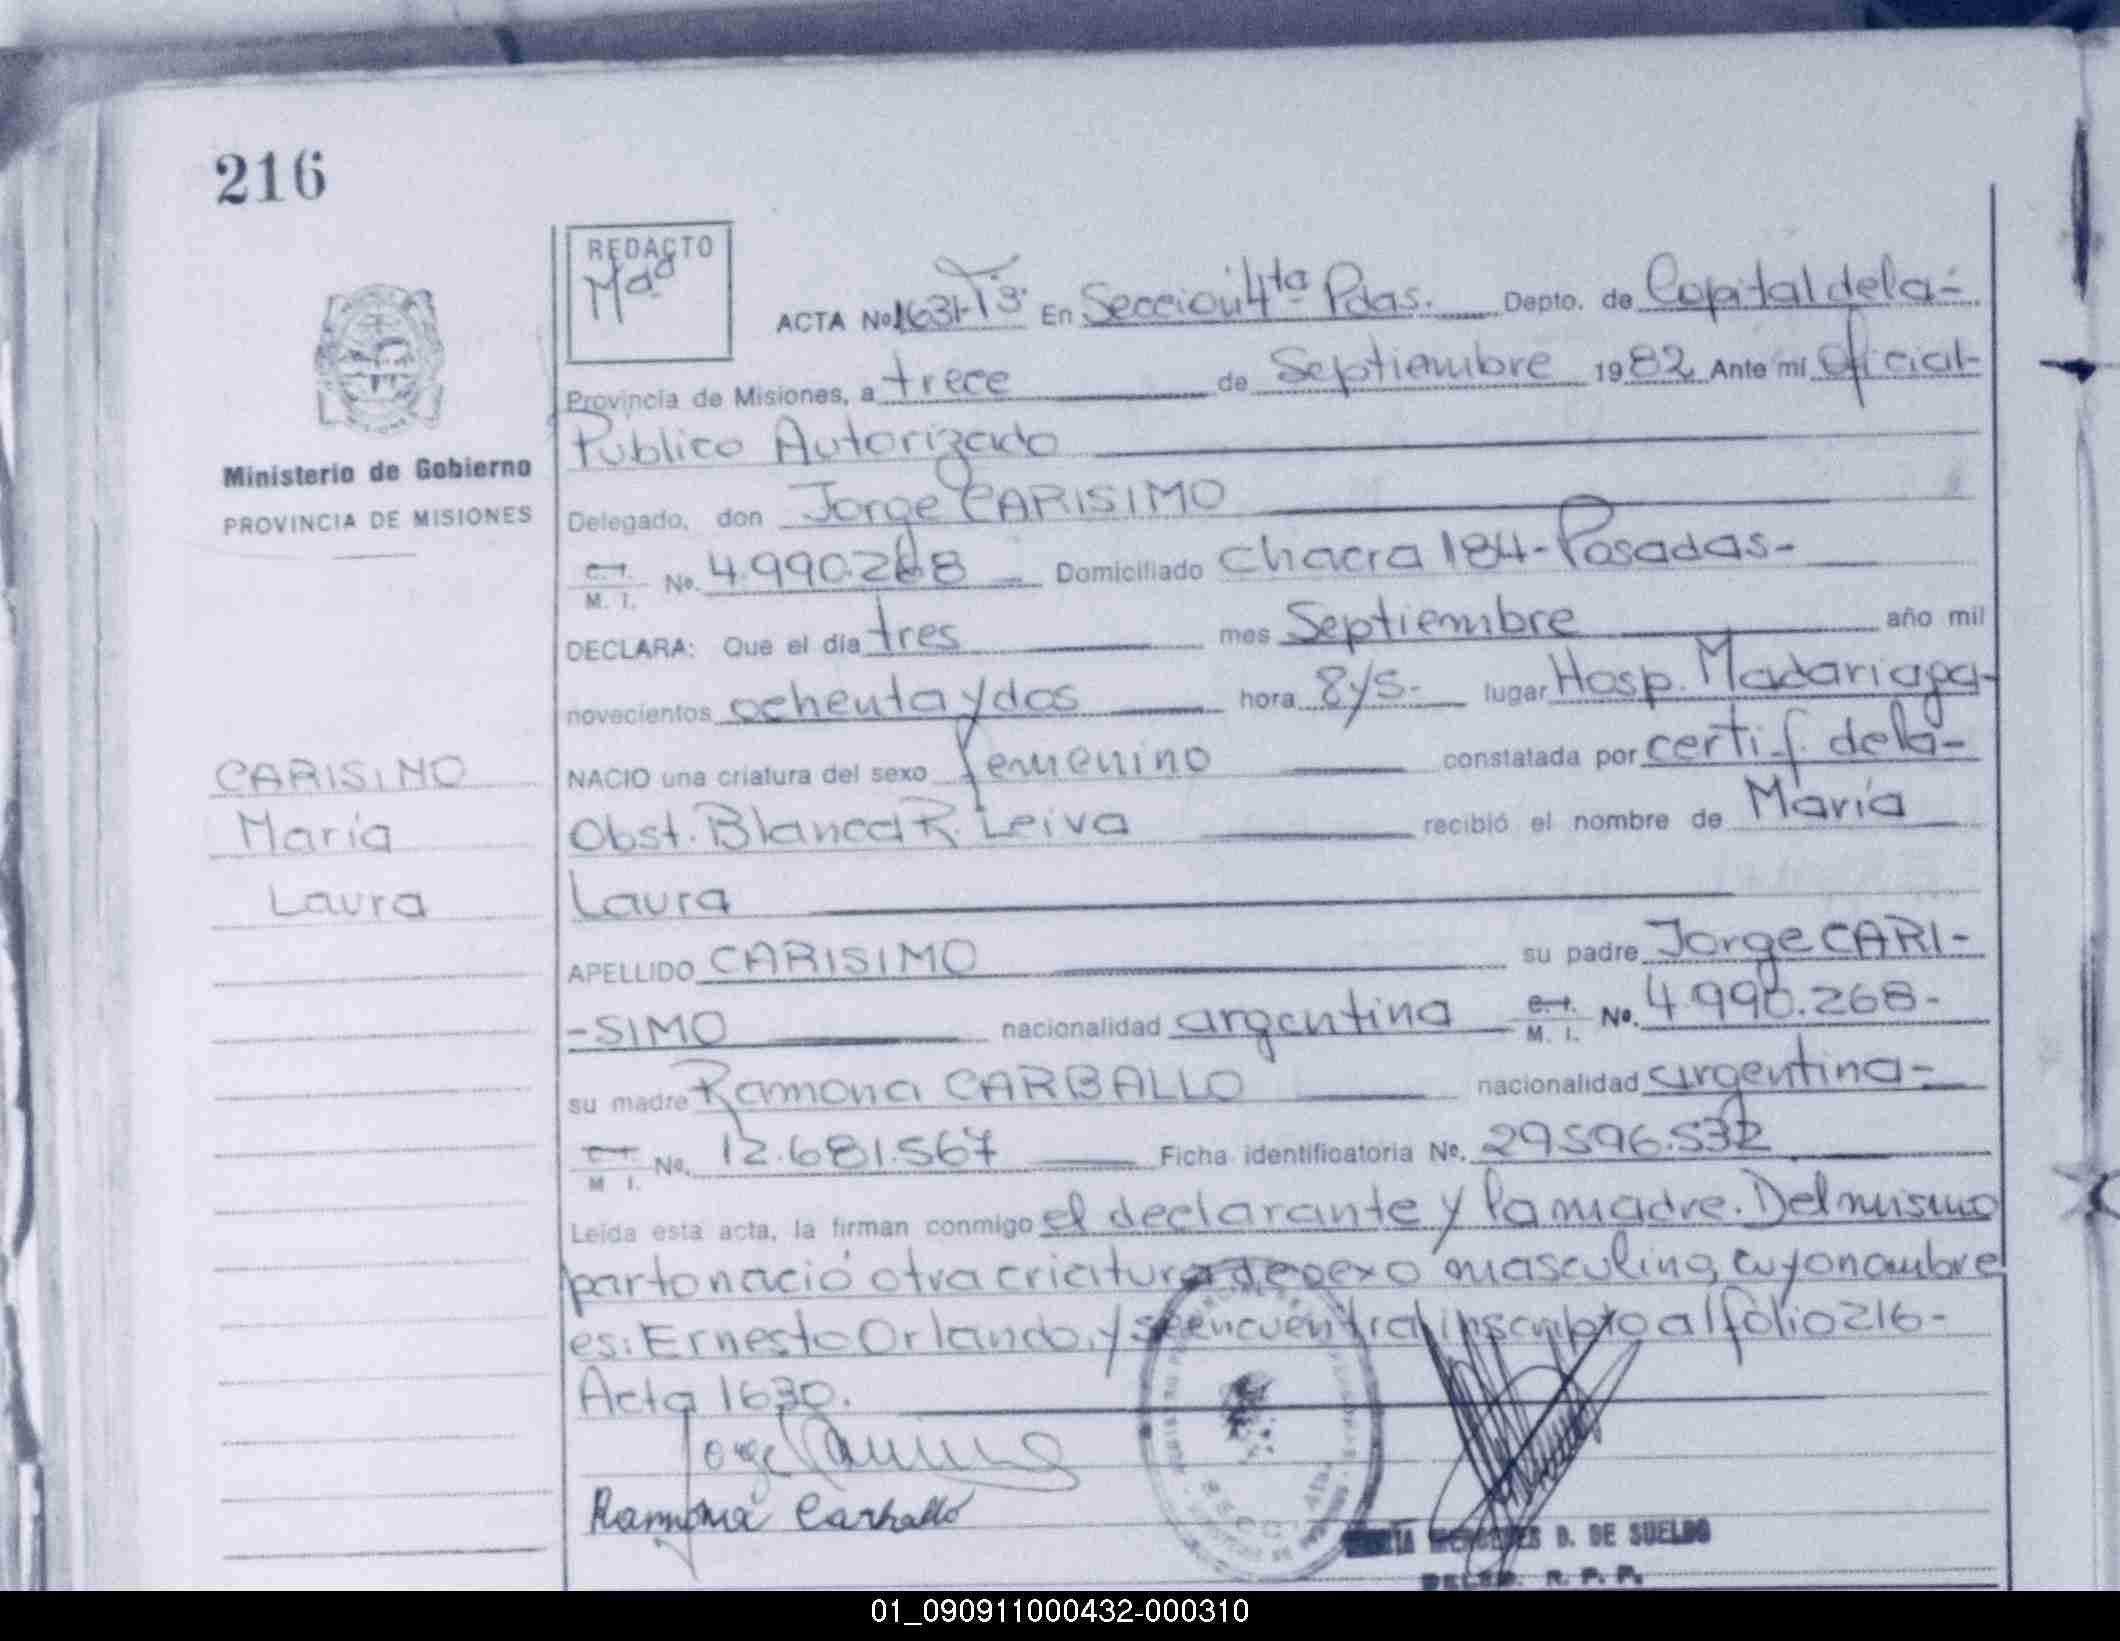 216
REDACTO
Ma
ACTA No 1631-Tº3º En Seccion 4ta Pdas. Depto. de Capital de la-
Provincia de Misiones, a trece de Septiembre 1982 Ante mí Oficial-
Publico Autorizado
Ministerio de Gobierno
PROVINCIA DE MISIONES
Delegado, don Jorge CARISIMO
C. I. M. I. No. 4.990.268 Domiciliado Chacra 184-Posadas-
DECLARA: Que el día tres mes Septiembre año mil
novecientos ochenta y dos hora 8y5.- lugar Hosp. Madariaga-
NACIO una criatura del sexo femenino constatada por certif. de la-
Obst. Blanca R. Leiva recibió el nombre de María
Laura
CARISIMO
María
Laura
APELLIDO CARISIMO su padre Jorge CARI-
-SIMO nacionalidad argentina C. I. M. I. No. 4.990.268-
su madre Ramona CARBALLO nacionalidad argentina-
C. I. M I. No. 12.681.567 Ficha identificatoria No. 29596.532
Leída esta acta, la firman conmigo el declarante y la madre. Del mismo
parto nació otra criatura de sexo masculino, cuyo nombre
es: Ernesto Orlando, y se encuentra inscripto al folio 216-
Acta 1630.
Jorge Carisimo
Ramona Carballo
MARÍA MERCEDES D. DE SUELDO
DELEG. R. P. P.
01_090911000432-000310